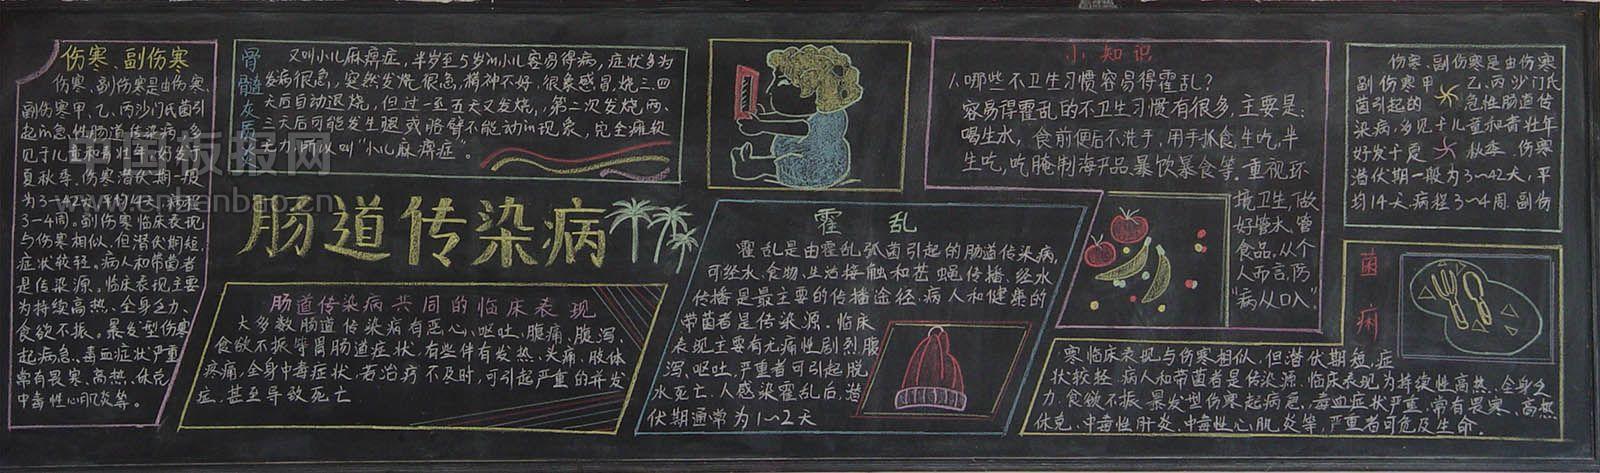 伤寒、副伤寒
伤寒、副伤寒是由伤寒、
副伤寒甲、乙、丙沙门氏菌引
起的急性肠道传染病,多
见于儿童和青壮年,好发于
夏秋季。伤寒潜伏期一般
为3~42天,平均14天,病程
3~4周。副伤寒临床表现
与伤寒相似,但潜伏期短,
症状较轻。病人和带菌者
是传染源。临床表现主要
为持续高热、全身乏力、
食欲不振。暴发型伤寒
起病急、毒血症状严重,
常有畏寒、高热、休克、
中毒性心肌炎等。
骨髓灰质炎
又叫小儿麻痹症,半岁至5岁的小儿容易得病,症状多为
发病很急,突然发烧很急,精神不好,很象感冒,烧三、四
天后自动退烧,但过一至五天又发烧,第二次发烧两、
三天后可能发生腿或胳臂不能动的现象,完全瘫软
无力,所以叫“小儿麻痹症”。
中国板报网
肠道传染病
肠道传染病共同的临床表现
大多数肠道传染病有恶心、呕吐、腹痛、腹泻、
食欲不振等胃肠道症状,有些伴有发热、头痛、肢体
疼痛,全身中毒症状,若治疗不及时,可引起严重的并发
症,甚至导致死亡
霍 乱
霍乱是由霍乱弧菌引起的肠道传染病,
可经水、食物、生活接触和苍蝇传播、经水
传播是最主要的传播途径,病人和健康的
带菌者是传染源,临床
表现主要有无痛性剧烈腹
泻、呕吐,严重者可引起脱
水死亡.人感染霍乱后,潜
伏期通常为1~2天
小知识
1.哪些不卫生习惯容易得霍乱?
容易得霍乱的不卫生习惯有很多,主要是:
喝生水,食前便后不洗手,用手抓食,生吃,半
生吃,吃腌制海产品,暴饮暴食等.重视环
境卫生,做
好管水、管
食品,从个
人而言,防
“病从口入”
伤寒、副伤寒是由伤寒
副伤寒甲、乙、丙沙门氏
菌引起的急性肠道传
染病,多见于儿童和青壮年
好发于夏秋季.伤寒
潜伏期一般为3~42天,平
均14天.病程3~4周.副伤
菌痢
寒临床表现与伤寒相似,但潜伏期短,症
状较轻.病人和带菌者是传染源.临床表现为持续性高热、全身乏
力、食欲不振.暴发型伤寒起病急,毒血症状严重,常有畏寒、高热
休克、中毒性肝炎、中毒性心肌炎等,严重者可危及生命.